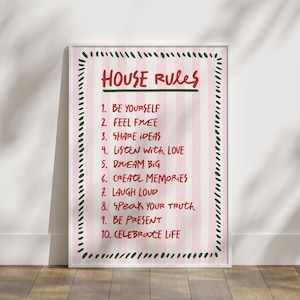 HOUSE RULES
1. BE YOURSELF
2. FEEL FREE
3. SHARE IDEAS
4. LISTEN WITH LOVE
5. DREAM BIG
6. CREATE MEMORIES
7. LAUGH LOUD
8. SPEAK YOUR TRUTH
9. BE PRESENT
10. CELEBRATE LIFE